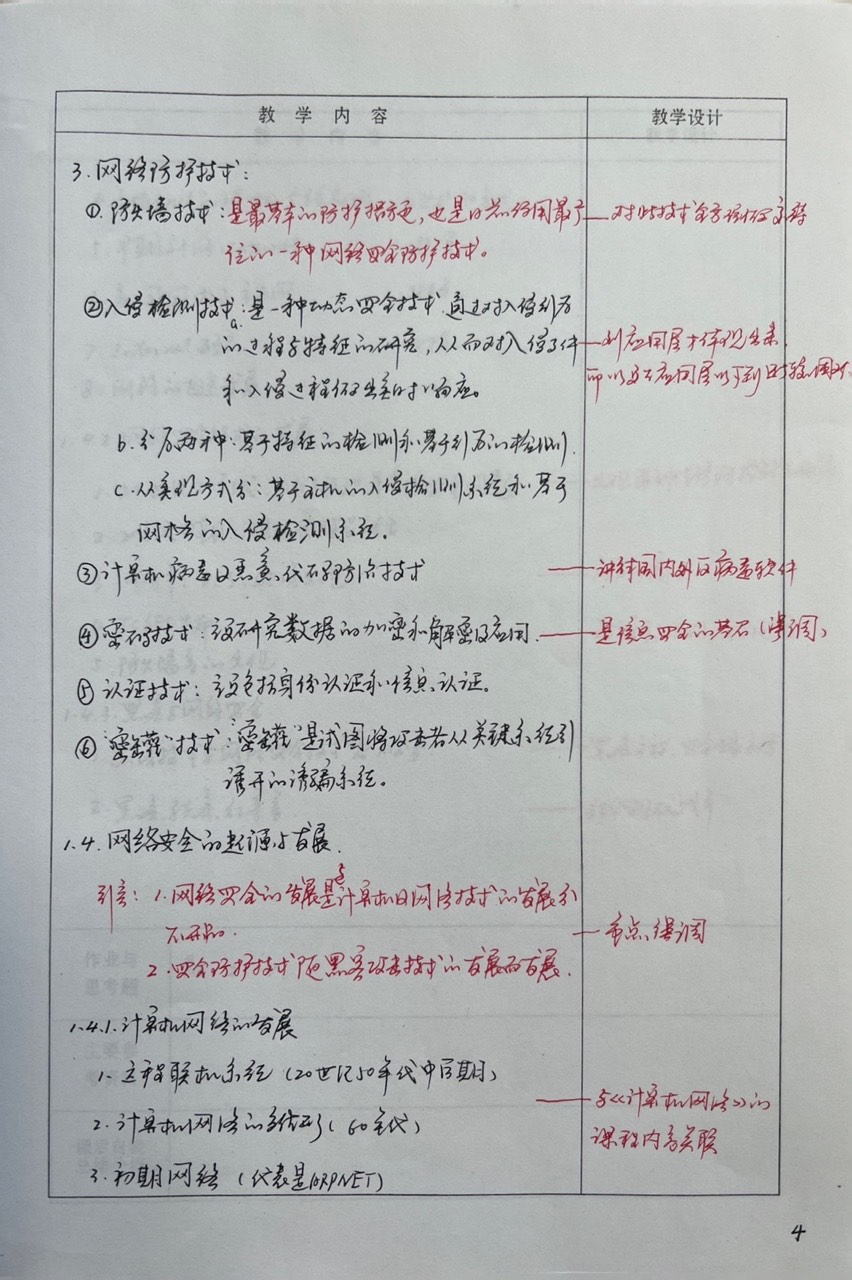 教 学 内 容
教学设计
3.网络防护技术：
①.防火墙技术：是最基本的防护措施，也是目前使用最广
泛的一种网络安全防护技术。
对此技术
②入侵检测技术：a.是一种动态安全技术，通过对入侵行为
的过程与特征的研究，从而对入侵事件
和入侵过程做出实时响应。
到应用层才体现出来，
所以
b.分为两种：基于特征的检测和基于行为的检测.
c.从实现方式分：基于主机的入侵检测系统和基于
网络的入侵检测系统.
③计算机病毒及恶意代码防治技术
讲解国内外反病毒软件
④密码技术：主要研究数据的加密和解密及应用.
是信息安全的基石(强调)
⑤认证技术：主要包括身份认证和信息认证。
⑥"蜜罐"技术："蜜罐"是试图将攻击者从关键系统引
诱开的诱骗系统。
1.4.网络安全的起源与发展.
引言：1.网络安全的发展是与计算机及网络技术的发展分
不开的.
2.安全防护技术随黑客攻击技术的发展而发展.
重点强调
1.4.1.计算机网络的发展
1.远程联机系统(20世纪50年代中后期)
2.计算机网络的雏形(60年代)
3.初期网络(代表是ARPNET)
与《计算机网络》的
课程内容关联
4